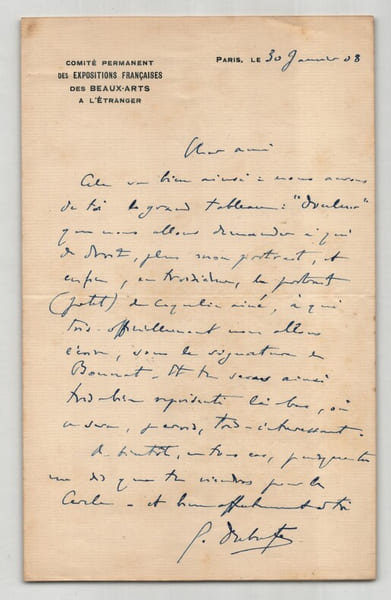 COMITÉ PERMANENT
DES EXPOSITIONS FRANÇAISES
DES BEAUX-ARTS
A L'ÉTRANGER
PARIS, LE 30 Janvier 08
Cher ami
Cela va bien ainsi : nous avons
de toi le grand tableau : "Douleur"
que nous allons demander à qui
de droit, plus mon portrait, et
enfin, en troisième, le portrait
(petit) de Coquelin ainé, à qui
très officiellement nous allons
écrire, sous la signature de
Bonnat. Et tu seras ainsi
très bien représenté là bas, où
ce sera, je crois, très intéressant.
A bientôt, en tous cas, puisque tu
me dis que tu viendras pour le
Cercle - et bien affectueusement à toi
G. Dubufe